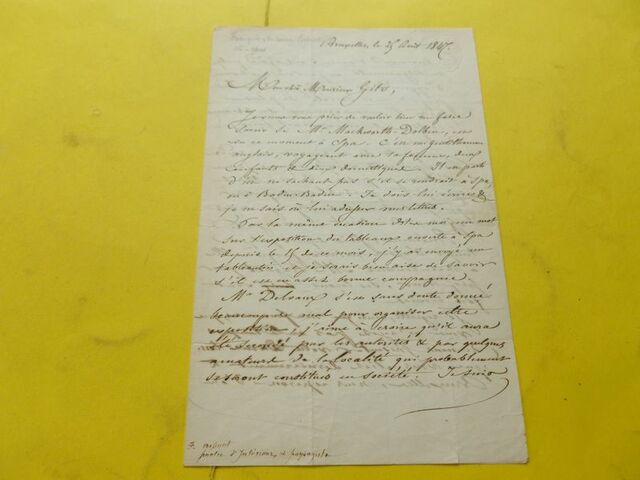 Bruxelles, le 25 Août 1847.
Mon cher Monsieur Gihs,
Je vous prie de vouloir bien me faire
savoir si Mr Mackworth-Dolben, est
en ce moment à Spa. C'est un gentilhomme
anglais, voyageant avec sa femme, deux
enfants & deux domestiques. Il est parti
d'ici ne sachant pas s'il se rendrait à Spa,
ou à Baden-Baden. Je dois lui écrire &
je ne sais où lui adresser ma lettre.
Par la même occasion dites moi un mot
sur l'exposition de tableaux ouverte à Spa
depuis le 15 de ce mois. j'y ai envoyé un
tableautin, et je serais bien aise de savoir
s'il est en assez bonne compagnie.
Mr Delvaux s'est sans doute donné
beaucoup de mal pour organiser cette
exposition. j'aime à croire qu'il aura
été secondé par les autorités & par quelques
amateurs de la localité qui probablement
se seront constitués en société. Je suis
peintre d'Intérieurs, & paysagiste